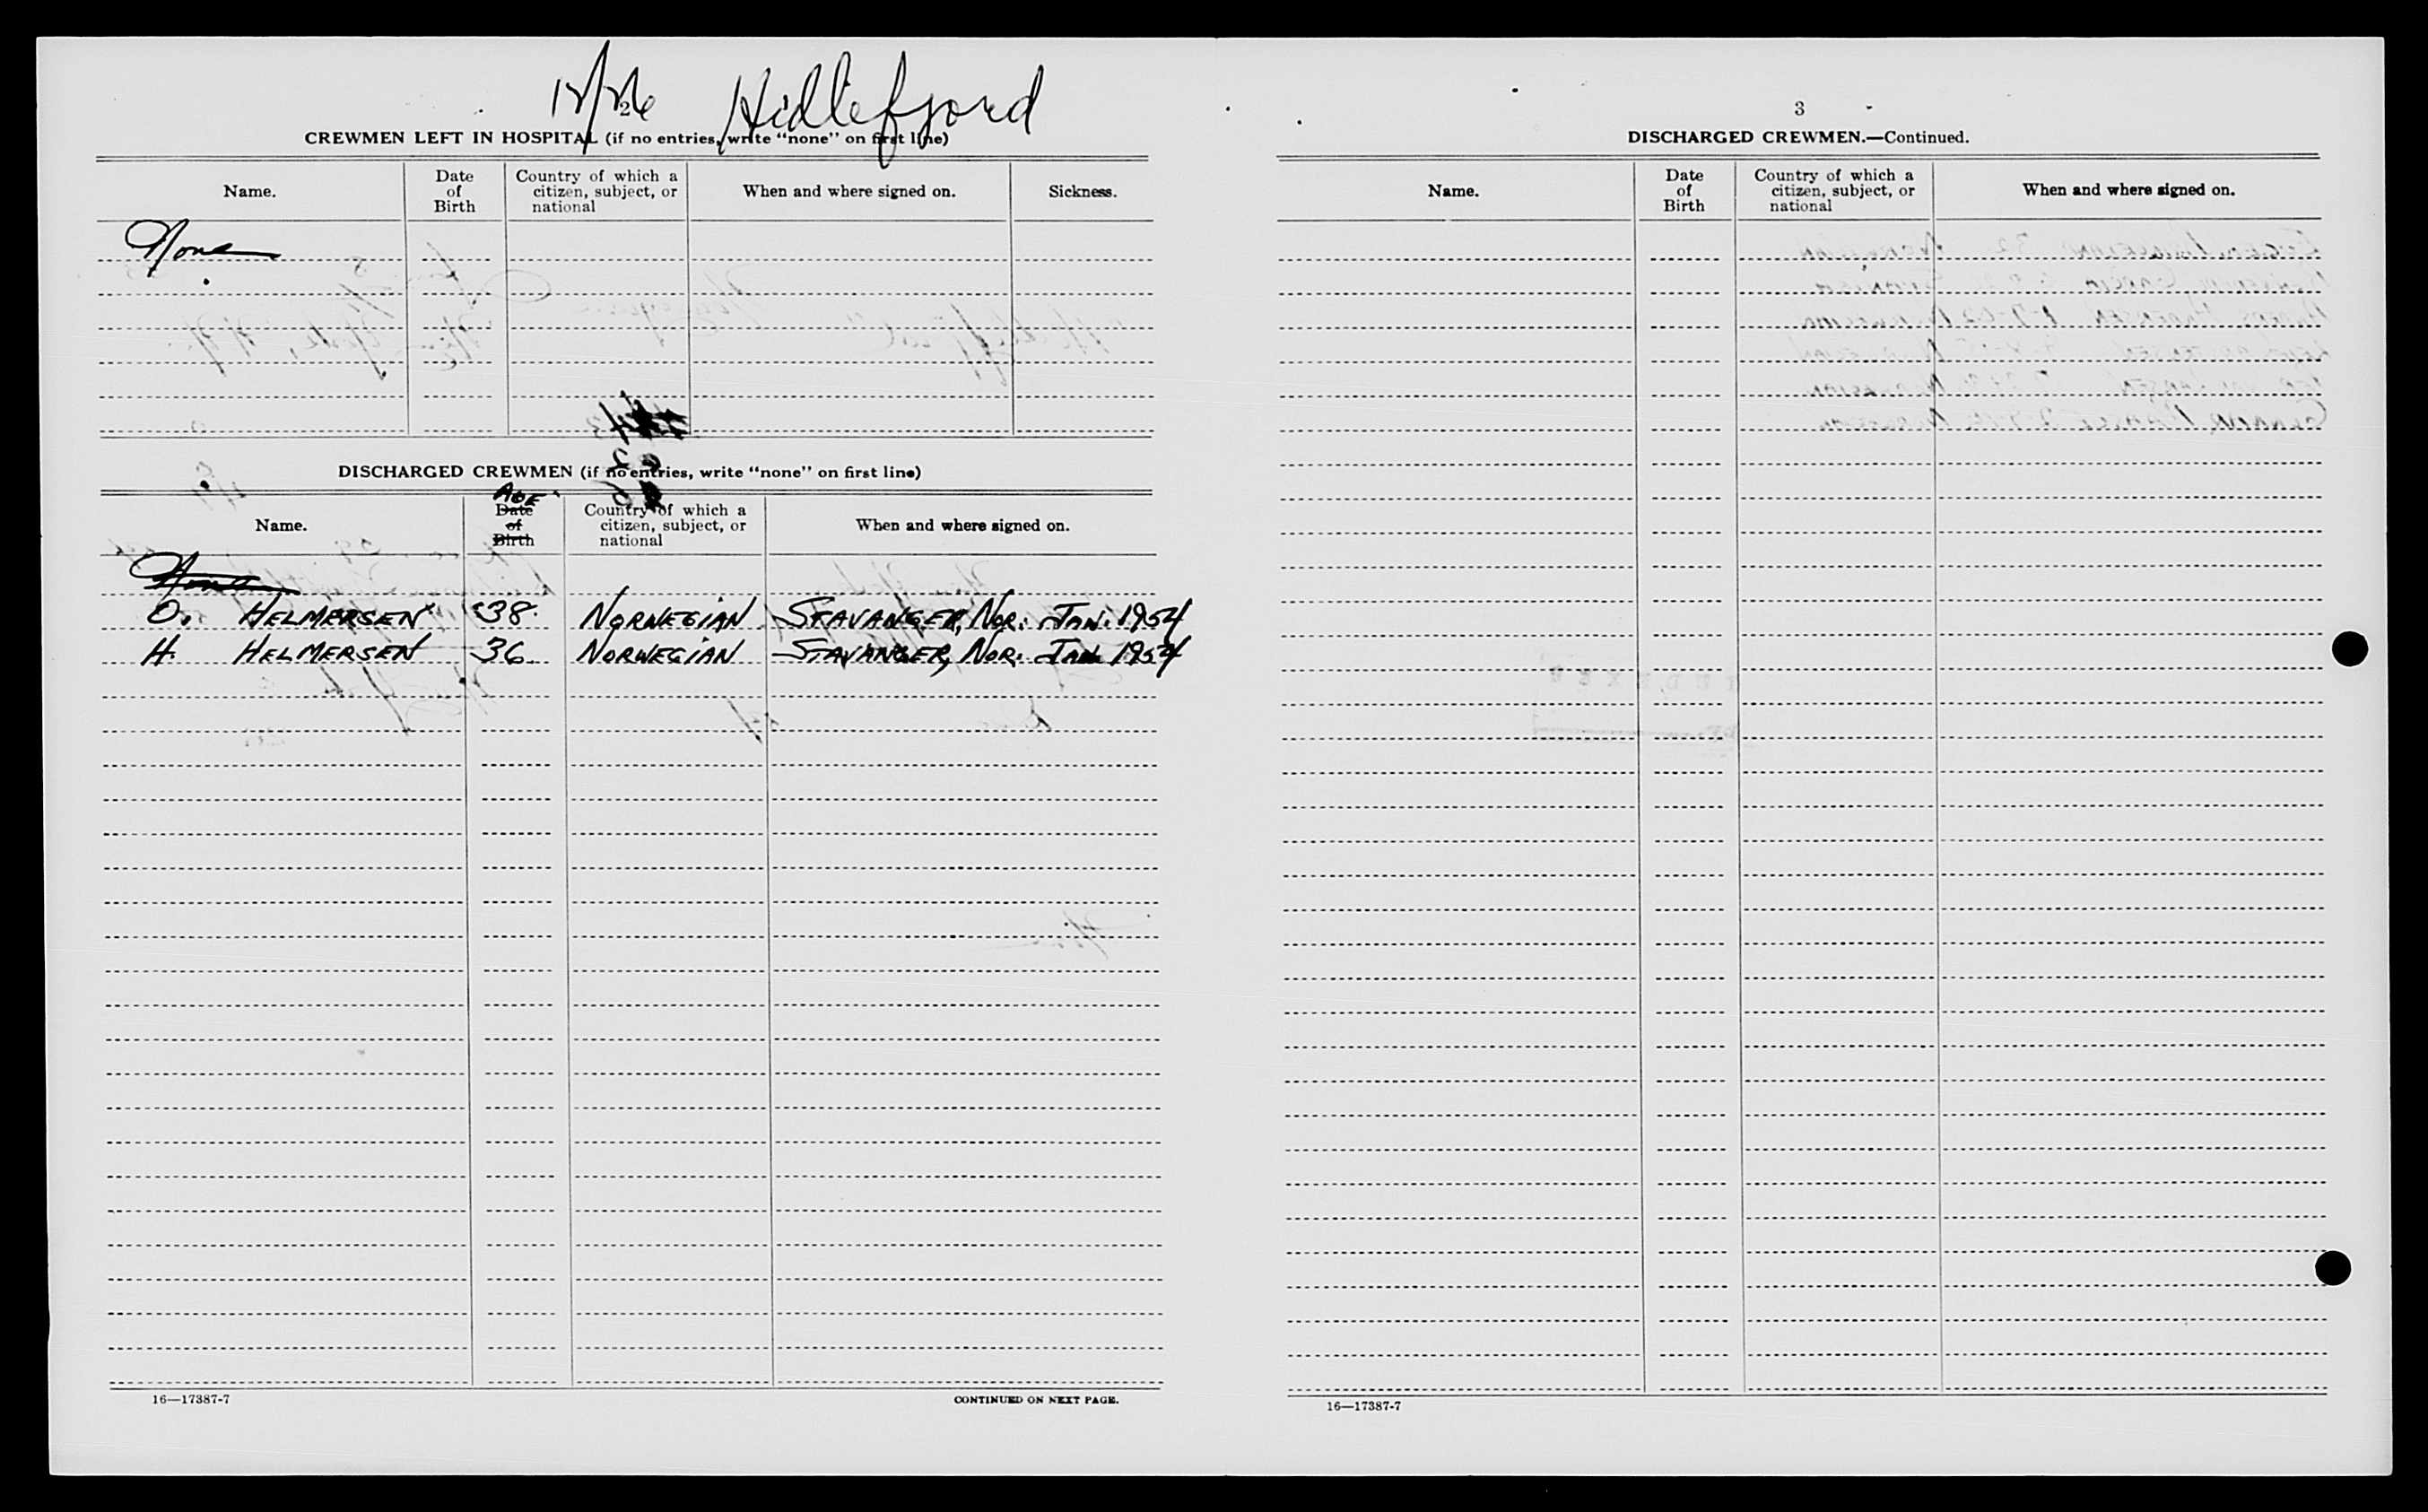 12/26 Hidlefjord
CREWMEN LEFT IN HOSPITAL (if no entries, write "none" on first line)
Name. Date of Birth Country of which a citizen, subject, or national When and where signed on. Sickness.
None
DISCHARGED CREWMEN (if no entries, write "none" on first line)
Name. AGE Date of Birth Country of which a citizen, subject, or national When and where signed on.
None
O. HELMERSEN 38 NORWEGIAN STAVANGER, NOR. JAN. 1954
H. HELMERSEN 36 NORWEGIAN STAVANGER, NOR. JAN 1954
16—17387-7 CONTINUED ON NEXT PAGE.
3
DISCHARGED CREWMEN.—Continued.
Name. Date of Birth Country of which a citizen, subject, or national When and where signed on.
16—17387-7